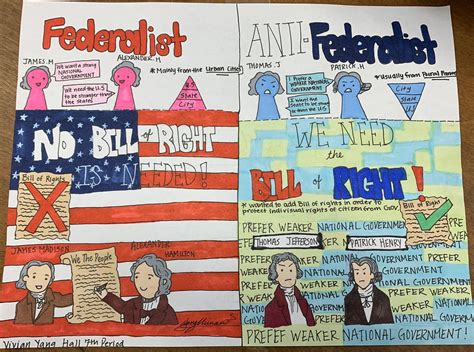 Federalist
JAMES.M
ALEXANDER.H
We want a strong
NATIONAL GOVERNMENT
We need the U.S
to be stronger than
the states
* Mainly from the Urban Cities
U.S
State
City
NO BILL of RIGHT
IS NEEDED!
Bill of Rights
JAMES MADISON
ALEXANDER
HAMILTON
We The People
Vivian Yang Hall 7th Period
ANTI-Federalist
THOMAS.J
PATRICK.H
Prefer a
WEAKER NATIONAL
GOVERNMENT!
I want the
States to be stronger
than the U.S
* Usually from Rural
City
State
U.S
WE NEED
the
BILL of RIGHT!
* wanted to add Bill of rights in order to
protect individual rights of citizen from Gov.
Bill of Rights
PREFER WEAKER NATIONAL GOVERN
THOMAS JEFFERSON
PATRICK HENRY
PREFER WEAKER
NATIONAL GOVERNMENT
NATIONAL GOVERNMENT!
PREFEF WEAKER NATIONAL GOVERNMENT!